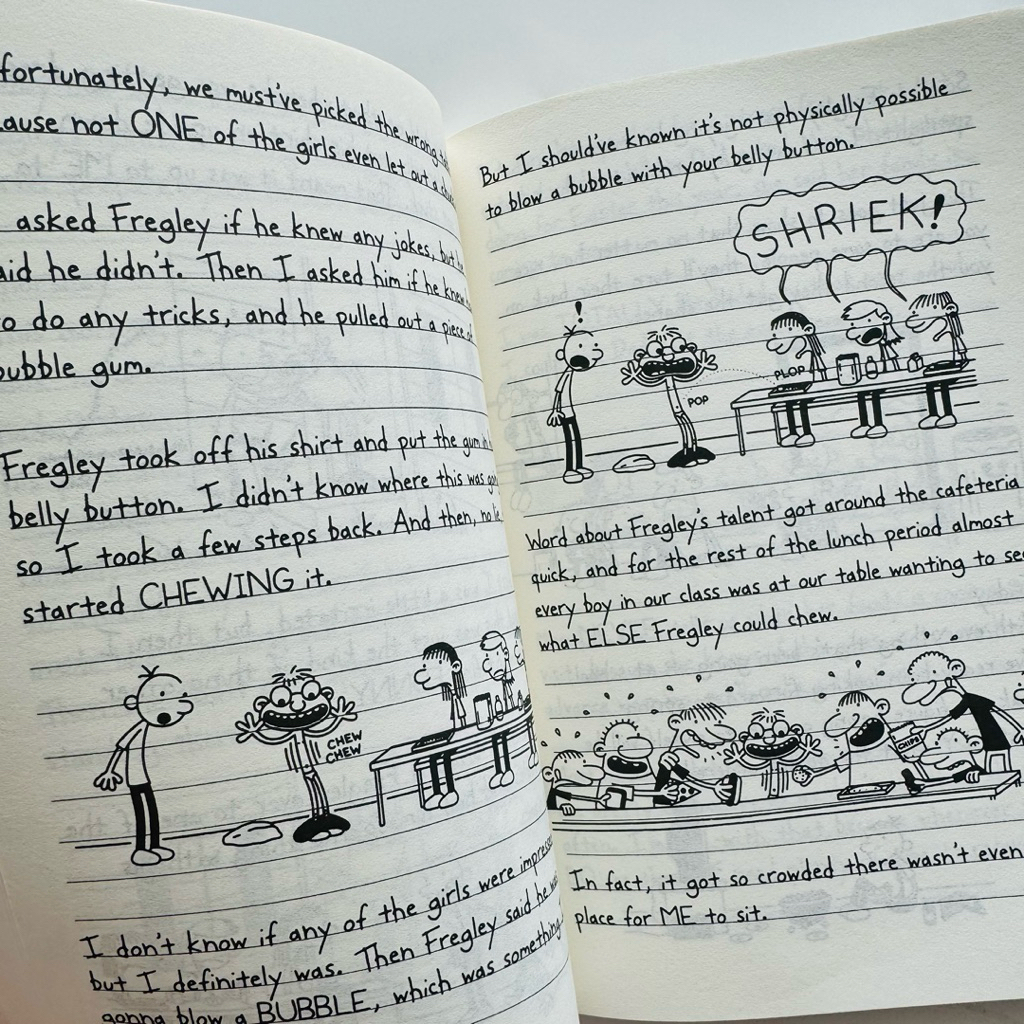 fortunately, we must've picked the wrong
ause not ONE of the girls even let out a
asked Fregley if he knew any jokes, but
aid he didn't. Then I asked him if he knew
o do any tricks, and he pulled out a piece of
bubble gum.
Fregley took off his shirt and put the gum in
belly button. I didn't know where this was
so I took a few steps back. And then, no lie,
started CHEWING it.
CHEW
CHEW
I don't know if any of the girls were impressed
but I definitely was. Then Fregley said he was
gonna blow a BUBBLE, which was something
But I should've known it's not physically possible
to blow a bubble with your belly button.
SHRIEK!
!
PLOP
POP
Word about Fregley's talent got around the cafeteria
quick, and for the rest of the lunch period almost
every boy in our class was at our table wanting to see
what ELSE Fregley could chew.
CHIPS
In fact, it got so crowded there wasn't even
place for ME to sit.